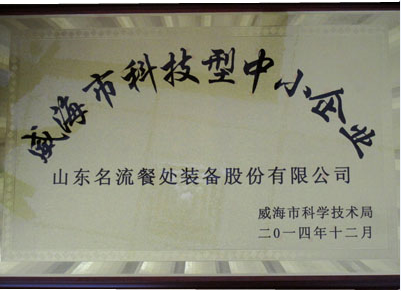 威海市科技型中小企业
山东名流餐处装备股份有限公司
威海市科学技术局
二〇一四年十二月